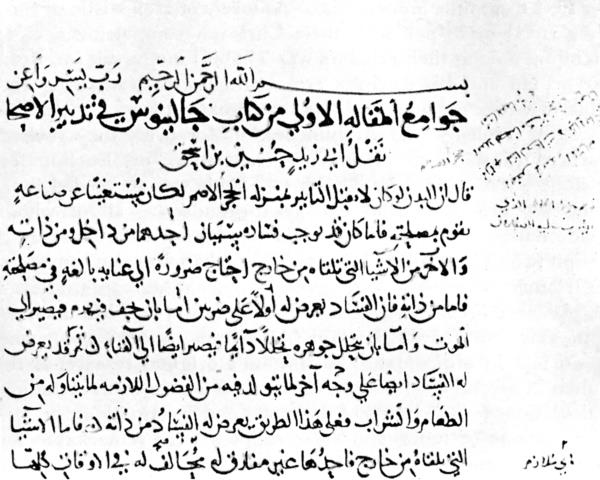 بسم الله الرحمن الرحيم رب يسر واعن
جوامع المقاله الاولى من كتاب جالينوس فى تدبير الاصحا
نقل ابى زيد حنين بن اسحق
قال ان البدن لو كان لا يقبل التاثير بمنزله الحجر الاصم لكان مستغنيا عن صناعه
تقوم بمصلحته فاما كان قد يوجب فساده سببان احدهما من داخل من ذاته
والاخر من الاشيا التى تلقاه من خارج احتاج ضروره الى عنايه بالغه فى مصلحته
فاما من ذاته فان الفساد يعرض له اولا على ضربين اما بان يجف فيصير الى
الموت واما بان يتحلل جوهره تحللا دائما فيصير ايضا الى الفناء وقد يعرض
له الفساد ايضا على وجه آخر لما يتولد فيه من الفضول اللازمه لما يتناوله من
الطعام والشراب فعلى هذا الطريق يعرض له الفساد من ذاته فاما الاشيا
التى تلقاه من خارج فاحدها غير مفارق له مخالف له فى الاوقات كلها